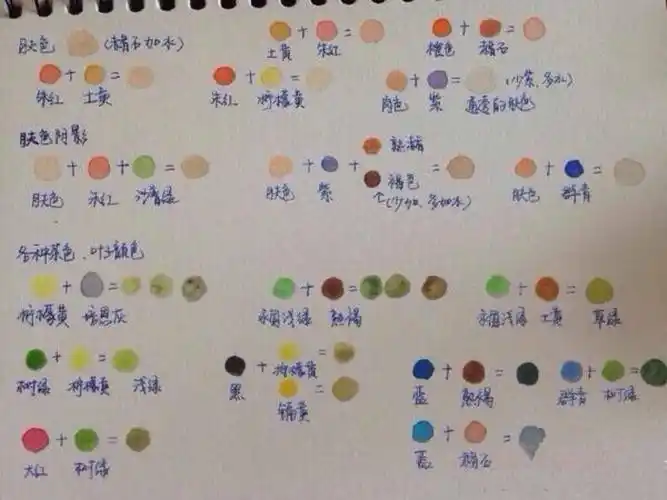 肤色 (赭石加水)
土黄 + 朱红 =
橙色 + 赭石 =
朱红 + 土黄 =
朱红 + 柠檬黄 =
肉色 + 紫 = 透透的肤色 (少紫,多水)
肤色阴影
肤色 + 朱红 + 沙普绿 =
肤色 + 紫 + 熟赭 褐色 =
↑(少加,多加水)
肤色 + 群青 =
各种茶色、叶子颜色
柠檬黄 + 培恩灰 =
永固浅绿 + 熟褐 =
永固浅绿 + 土黄 = 草绿
树绿 + 柠檬黄 = 浅绿
黑 + 柠檬黄 =
镉黄 =
蓝 + 熟褐 =
群青 + 树绿 =
大红 + 树绿 =
蓝 + 赭石 =